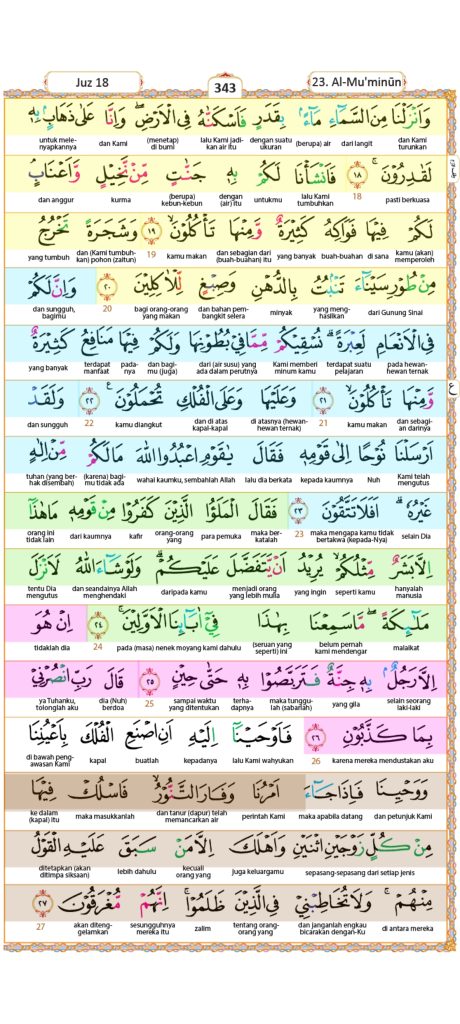 Juz 18
343
23. Al-Mu'minūn
وَاَنْزَلْنَا مِنَ السَّمَاۤءِ مَاۤءًۢ بِقَدَرٍ فَاَسْكَنّٰهُ فِى الْاَرْضِۖ وَاِنَّا عَلٰى ذَهَابٍۢ بِهٖ
dan Kami turunkan dari langit (berupa) air dengan suatu ukuran lalu Kami jadikan air itu (menetap) di bumi dan Kami untuk melenyapkannya
لَقٰدِرُوْنَ ۚ ١٨ فَاَنْشَأْنَا لَكُمْ بِهٖ جَنّٰتٍ مِّنْ نَّخِيْلٍ وَّاَعْنَابٍۘ
pasti berkuasa 18 lalu Kami tumbuhkan untukmu dengan (air) itu (berupa) kebun-kebun kurma dan anggur
لَكُمْ فِيْهَا فَوَاكِهُ كَثِيْرَةٌ وَّمِنْهَا تَأْكُلُوْنَ ۙ ١٩ وَشَجَرَةً تَخْرُجُ
kamu (akan) memperoleh di sana buah-buahan yang banyak dan sebagian dari (buah-buahan) itu kamu makan 19 dan (Kami tumbuhkan) pohon (zaitun) yang tumbuh
مِنْ طُوْرِ سَيْنَاۤءَ تَنْۢبُتُ بِالدُّهْنِ وَصِبْغٍ لِّلْاٰكِلِيْنَ ٢٠ وَاِنَّ لَكُمْ
dari Gunung Sinai yang menghasilkan minyak dan bahan pembangkit selera bagi orang-orang yang makan 20 dan sungguh, bagimu
فِى الْاَنْعَامِ لَعِبْرَةًۗ نُسْقِيْكُمْ مِّمَّا فِيْ بُطُوْنِهَا وَلَكُمْ فِيْهَا مَنَافِعُ كَثِيْرَةٌ
pada hewan-hewan ternak terdapat suatu pelajaran Kami memberi minum kamu dari (air susu) yang ada dalam perutnya dan bagimu (juga) padanya terdapat manfaat yang banyak
وَّمِنْهَا تَأْكُلُوْنَ ۙ ٢١ وَعَلَيْهَا وَعَلَى الْفُلْكِ تُحْمَلُوْنَ ࣖ ٢٢ وَلَقَدْ
dan sebagian darinya kamu makan 21 di atasnya (hewan-hewan ternak) dan di atas kapal-kapal kamu diangkut 22 dan sungguh
اَرْسَلْنَا نُوْحًا اِلٰى قَوْمِهٖ فَقَالَ يٰقَوْمِ اعْبُدُوا اللّٰهَ مَا لَكُمْ مِّنْ اِلٰهٍ
Kami telah mengutus Nuh kepada kaumnya lalu dia berkata wahai kaumku, sembahlah Allah (karena) bagimu tidak ada tuhan (yang berhak disembah)
غَيْرُهٗۗ اَفَلَا تَتَّقُوْنَ ٢٣ فَقَالَ الْمَلَؤُا الَّذِيْنَ كَفَرُوْا مِنْ قَوْمِهٖ مَا هٰذَآ
selain Dia maka mengapa kamu tidak bertakwa (kepada-Nya) 23 maka berkatalah para pemuka orang-orang yang kafir dari kaumnya orang ini tidak lain
اِلَّا بَشَرٌ مِّثْلُكُمْۙ يُرِيْدُ اَنْ يَّتَفَضَّلَ عَلَيْكُمْۗ وَلَوْ شَاۤءَ اللّٰهُ لَاَنْزَلَ
hanyalah manusia seperti kamu yang ingin menjadi orang yang lebih mulia daripada kamu dan seandainya Allah menghendaki tentu Dia mengutus
مَلٰۤىِٕكَةً ۖمَّا سَمِعْنَا بِهٰذَا فِيْٓ اٰبَاۤىِٕنَا الْاَوَّلِيْنَ ۚ ٢٤ اِنْ هُوَ
malaikat belum pernah kami mendengar (seruan yang seperti) ini pada (masa) nenek moyang kami dahulu 24 tidaklah dia
اِلَّا رَجُلٌۢ بِهٖ جِنَّةٌ فَتَرَبَّصُوْا بِهٖ حَتّٰى حِيْنٍ ٢٥ قَالَ رَبِّ انْصُرْنِيْ
selain seorang laki-laki yang gila maka tunggulah (sabarlah) terhadapnya sampai waktu yang ditentukan 25 dia (Nuh) berdoa ya Tuhanku, tolonglah aku
بِمَا كَذَّبُوْنِ ٢٦ فَاَوْحَيْنَآ اِلَيْهِ اَنِ اصْنَعِ الْفُلْكَ بِاَعْيُنِنَا
karena mereka mendustakan aku 26 lalu Kami wahyukan kepadanya buatlah kapal di bawah pengawasan Kami
وَوَحْيِنَا فَاِذَا جَاۤءَ اَمْرُنَا وَفَارَ التَّنُّوْرُۙ فَاسْلُكْ فِيْهَا
dan petunjuk Kami maka apabila datang perintah Kami dan tanur (dapur) telah memancarkan air maka masukkanlah ke dalam (kapal) itu
مِنْ كُلٍّ زَوْجَيْنِ اثْنَيْنِ وَاَهْلَكَ اِلَّا مَنْ سَبَقَ عَلَيْهِ الْقَوْلُ
sepasang-sepasang dari setiap jenis juga keluargamu kecuali orang yang lebih dahulu ditetapkan (akan ditimpa siksaan)
مِنْهُمْۚ وَلَا تُخَاطِبْنِيْ فِى الَّذِيْنَ ظَلَمُوْاۚ اِنَّهُمْ مُّغْرَقُوْنَ ٢٧
di antara mereka dan janganlah engkau bicarakan dengan-Ku tentang orang-orang yang zalim sesungguhnya mereka itu akan ditenggelamkan 27